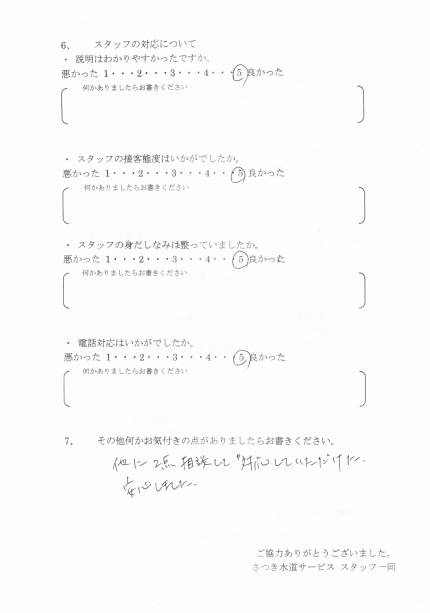 6、 スタッフの対応について
・ 説明はわかりやすかったですか。
悪かった 1・・・2・・・3・・・4・・・5 良かった
何かありましたらお書きください
・ スタッフの接客態度はいかがでしたか。
悪かった 1・・・2・・・3・・・4・・・5 良かった
何かありましたらお書きください
・ スタッフの身だしなみは整っていましたか。
悪かった 1・・・2・・・3・・・4・・・5 良かった
何かありましたらお書きください
・ 電話対応はいかがでしたか。
悪かった 1・・・2・・・3・・・4・・・5 良かった
何かありましたらお書きください
7、 その他何かお気付きの点がありましたらお書きください。
他に2点相談して対応していただけた。
安心しました。
ご協力ありがとうございました。
さつき水道サービス スタッフ一同